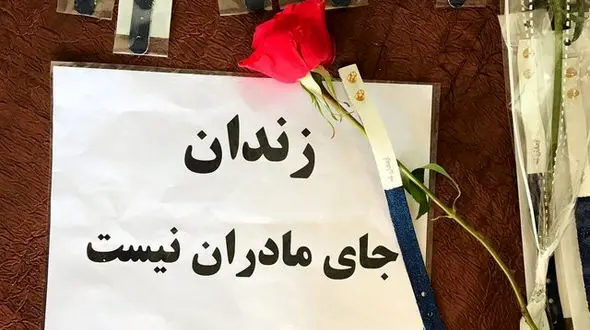 زندان
جای مادران نیست